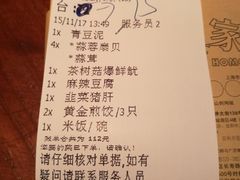 台:
15/11/17 13:49 服务员2
1x 青豆泥
4x *蒜蓉扇贝
*蒜茸
1x 茶树菇爆鱿鱼
1x 麻辣豆腐
1x 韭菜猪肝
2x 黄金煎饺/3只
1x 米饭/碗
账单合共为 112元
请仔细核对单据,如有
疑问请联系服务人员
家
HOM